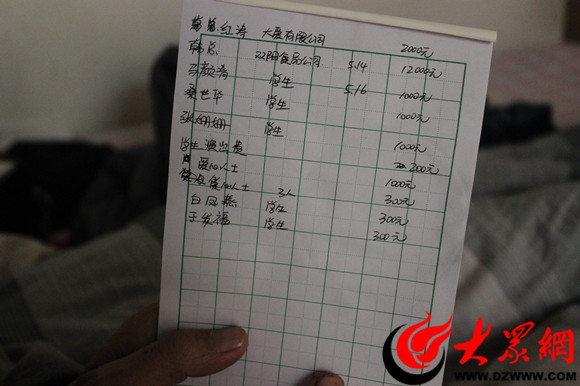 总红涛 大展有限公司 2000元
韩总 双阳食品公司 5.14 12000元
马教春 学生 5.16 1000元
桑世华 学生 1000元
张姗姗 学生 1000元
学生演出费 200元
爱心人士 1000元
爱心人士 3人 300元
白凤燕 学生 300元
于发福 学生 300元
大眾網
WWW.DZWWW.COM